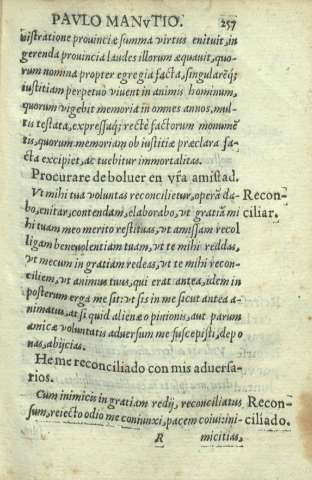 PAVLO MANVTIO. 257
nistratione prouinciæ summa virtus enituit, in
gerenda prouincia laudes illorum æquauit, quo-
rum nomina propter egregia facta, singularẽq;
iustitiam perpetuo viuent in animis hominum,
quorum vigebit memoria in omnes annos, mul-
tis testata, expressaq; rectè factorum monumẽ
tis, quorum memoriam ob iustitiæ præclara fa-
cta excipiet, ac tuebitur immortalitas.
Procurare de boluer en vr̃a amistad.
Vt mihi tua voluntas reconcilietur, operã da- Recon-
bo, enitar, contendam, elaborabo, vt gratiã mi ciliar.
hi tuam meo merito restituas, vt amissam recol
ligam beneuolentiam tuam, vt te mihi reddas,
vt mecum in gratiam redeas, vt te mihi recon-
ciliem, vt animus tuus, qui erat antea, idem in
posterum erga me sit: vt sis in me sicut antea a-
nimatus, at si quid alienæ opinionis, aut parum
amicæ voluntatis aduersum me suscepisti, depo
nas, abijcias.
He me reconciliado con mis aduersa-
rios.
Cum inimicis in gratiam redij, reconciliatus Recon-
sum, reiecto odio me coniunxi, pacem coiui: ini- ciliado.
R micitias,